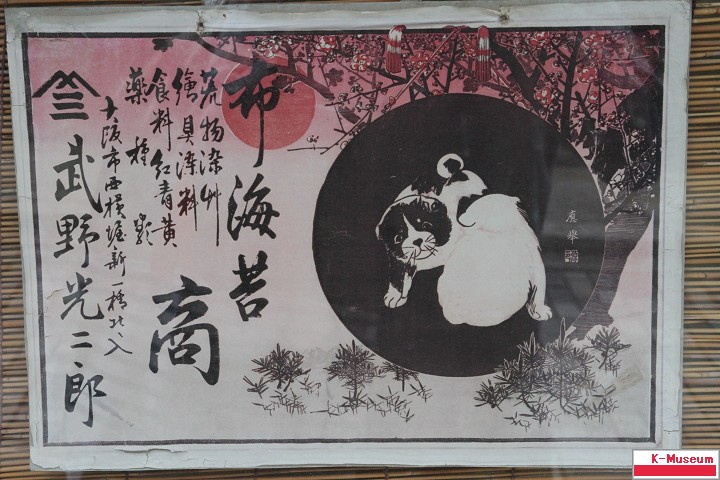 布海苔
荒物染艸
繪具染料
食料紅青黄
薬種類
商
大阪市西横堀新一橋北へ入
武野光二郎
K-Museum